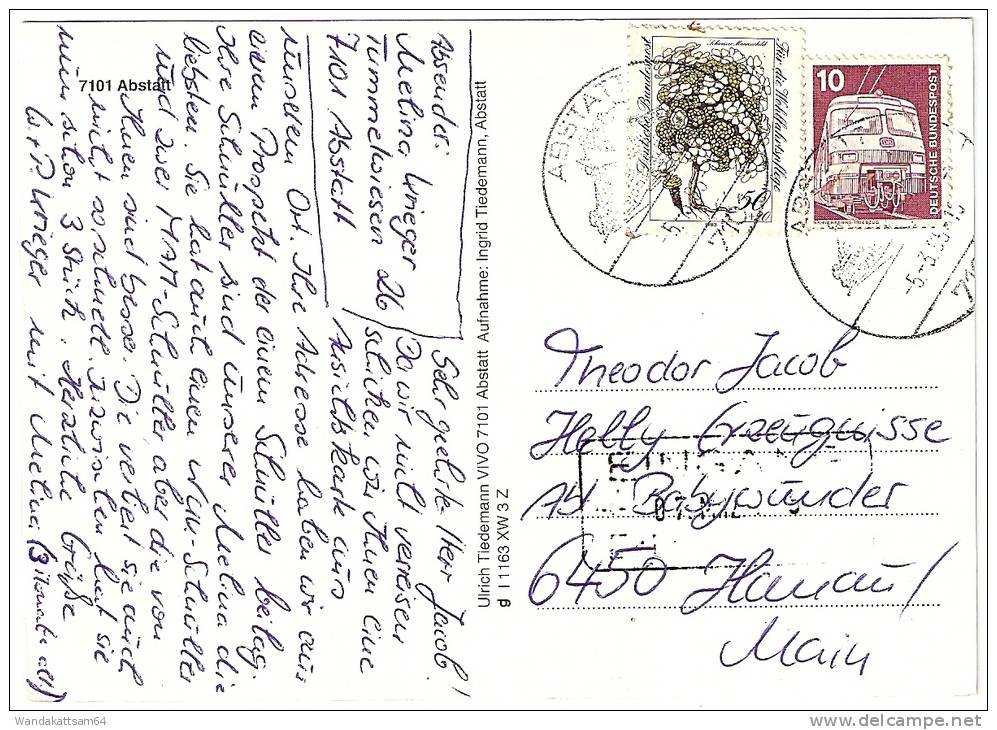 7101 Abstatt
Absender:
Melina Krieger
Tummelwiesen 26
7101 Abstatt
Sehr geehrter Herr Jacob!
Da wir nicht verreisen
schicken wir Ihnen eine
Ansichtskarte aus
unserem Ort. Ihre Adresse haben wir aus
einem Prospekt der einem Schnuller beilag.
Ihre Schnuller sind unserer Melina die
liebsten. Sie hat auch einen -Schnuller
und zwei MAM-Schnuller aber die von
Ihnen sind besser. Die verliert sie auch
nicht so schnell. Inzwischen hat sie
nun schon 3 Stück. Herzliche Grüße
mit Melina (3 Monate alt)
Ulrich Tiedemann VIVO 7101 Abstatt Aufnahme: Ingrid Tiedemann, Abstatt
g I 1163 XW 3 Z
Für die Wohlfahrtspflege
Deutsche Bundespost
50
+20
10
DEUTSCHE BUNDESPOST
ABSTATT
-5.-3.
71
Theodor Jacob
Helly Erzeugnisse
Babywunder
6450 Hanau/
Main
Wandakattsam64
www.delcampe.net